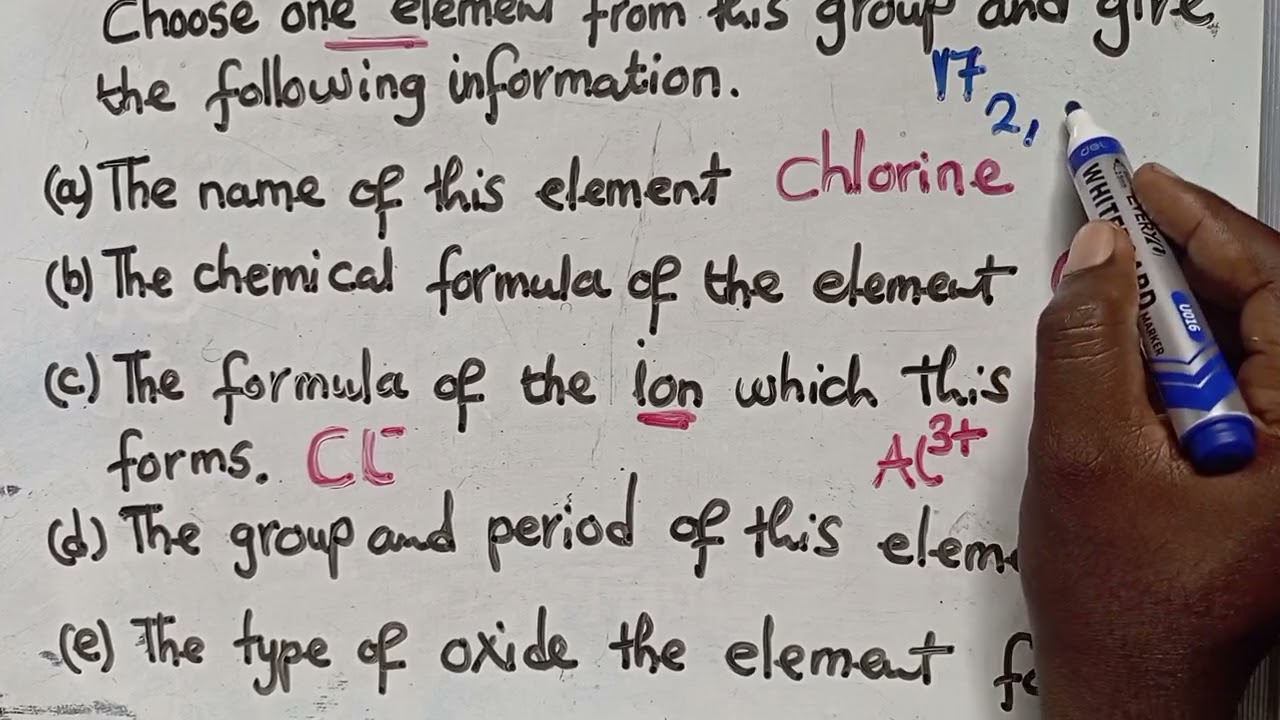 Choose one element from this group and give
the following information.
17
2,
(a) The name of this element Chlorine
(b) The chemical formula of the element
(c) The formula of the ion which this
forms. Cl⁻ Al³⁺
(d) The group and period of this elem
(e) The type of oxide the element
WHITE
MARKER
U016